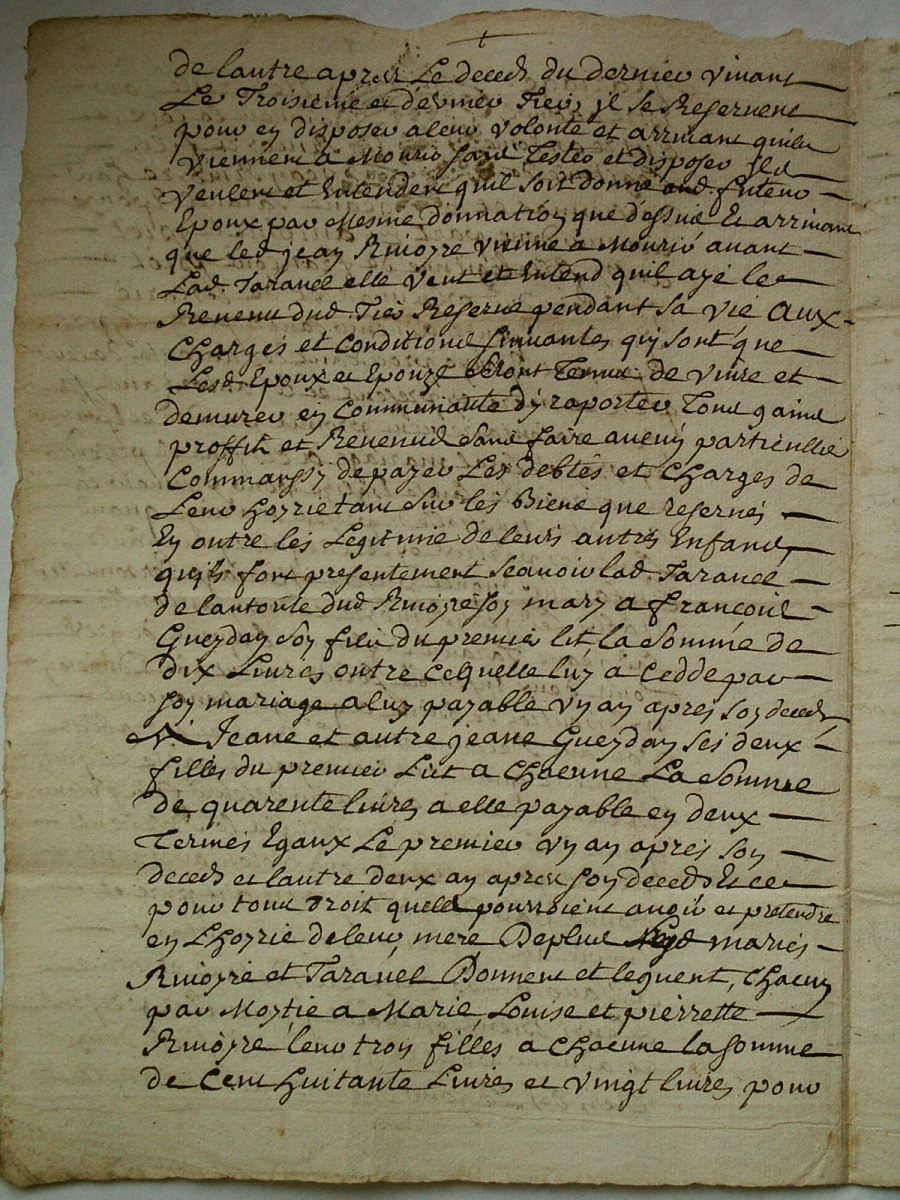 de lautre apres Le deced du dernier vivant
Le Troisieme et dernier Tier, jl se Reservent
pour en disposer aleur volonté et arrivant quils
viennent a Mourir sans Tester et disposer jls
veulent et Entendent quil soit donné aud. futeur
Epoux par Mesme donnation que dessus Et arrivant
que led jean Rivoyre vienne a Mourir avant
Lad. Taravel elle veut et Entend quil aye le
Revenu dud. Tier Reservé pendant sa vie aux
Charges et conditions suivantes qui sont que
Lesd Epoux et Epouze seront Tenus de vivre et
demurer en Communauté dy raporter Tous gains
proffit et Revenus sans faire aucun particullie
Commanssy de payer Les debtes et Charges de
Leur hoyrie tant sur les Biens que reservés
En outre les Legitime de leurs autres Enfans
quils font presentement Scavoir lad. Taravel
de lautorite dud Rivoyre son mary a francois
Gueydan son filis du premier lit la Somme de
dix Livres outre Cequelle luy a Ceddé par
son mariage a luy payable un an apres son deced
A Jeane et autre jeane Gueydan ses deux
filles du premier Lit a Chacunne La Somme
de quarente livres a elle payable en deux
Termes Egaux Le premier un an apres son
deced et lautre deux an apres son deced Et ce
pour tous Droit quels pourroient avoir et pretendre
en Lhoyrie de leur mere Deplus lesd mariés
Rivoyre et Taravel Donnent et leguent, Chacun
par Moytie a Marie, Louise et pierrette
Rivoyre leur troy filles a Chacunne la somme
de Cent huitante Livres et vingt livres pour